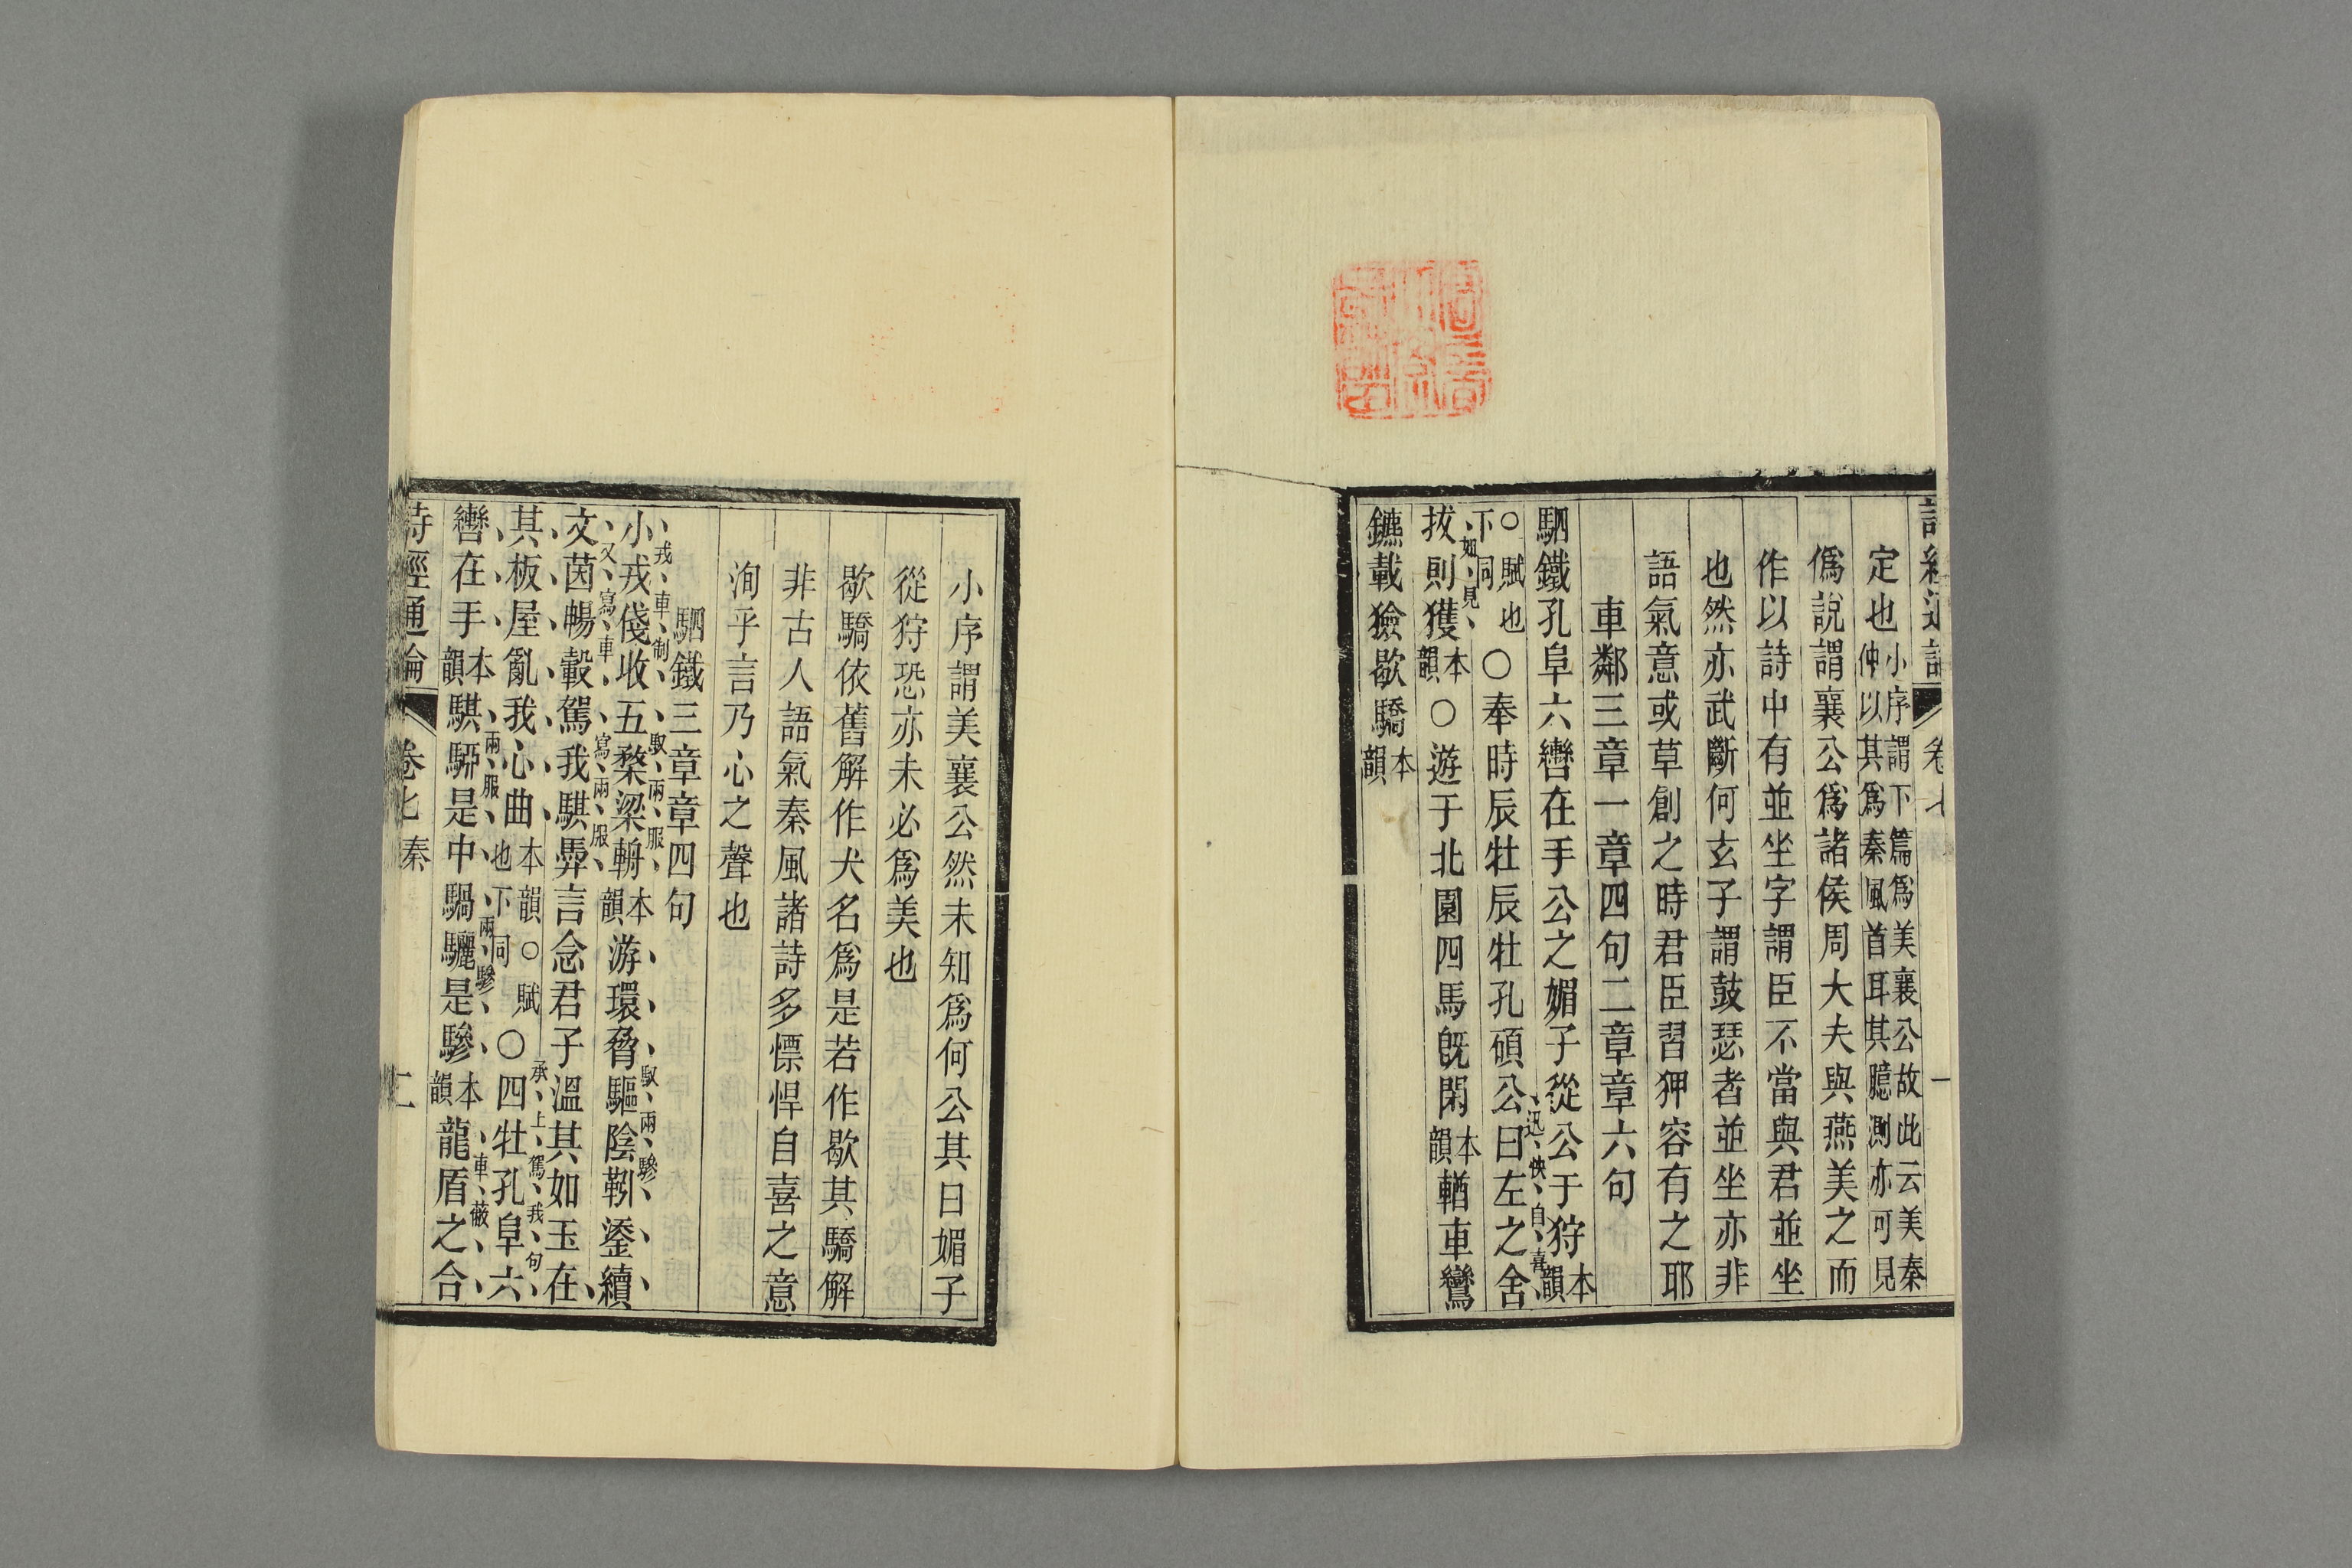 詩經通論 卷七 一
定也小序謂下篇爲美襄公故此云美秦仲以其爲秦風首耳其臆測亦可見
僞說謂襄公爲諸侯周大夫與燕美之而
作以詩中有並坐字謂臣不當與君並坐
也然亦武斷何玄子謂鼓瑟者並坐亦非
語氣意或草創之時君臣習狎容有之耶
車鄰三章一章四句二章章六句
駟鐵孔阜六轡在手公之媚子從公于狩本韻
○賦也下同○奉時辰牡辰牡孔碩公曰左之舍
迅快自喜
拔則獲本韻○遊于北園四馬旣閑本韻輶車鸞
如見
鑣載獫歇驕本韻
小序謂美襄公然未知爲何公其曰媚子
從狩恐亦未必爲美也
歇驕依舊解作犬名爲是若作歇其驕解
非古人語氣秦風諸詩多慓悍自喜之意
洵乎言乃心之聲也
駟鐵三章章四句
小戎俴收五楘梁輈本韻游環脅驅陰靷鋈續
戎車制 馭兩服 馭兩驂
文茵暢轂駕我騏馵言念君子溫其如玉在
又寫車 寫兩服
其板屋亂我心曲本韻○賦也下同○四牡孔阜六
承上駕我句
轡在手本韻騏駵是中騧驪是驂本韻龍盾之合
兩服 兩驂 車蔽
詩經通論 卷七 秦 二